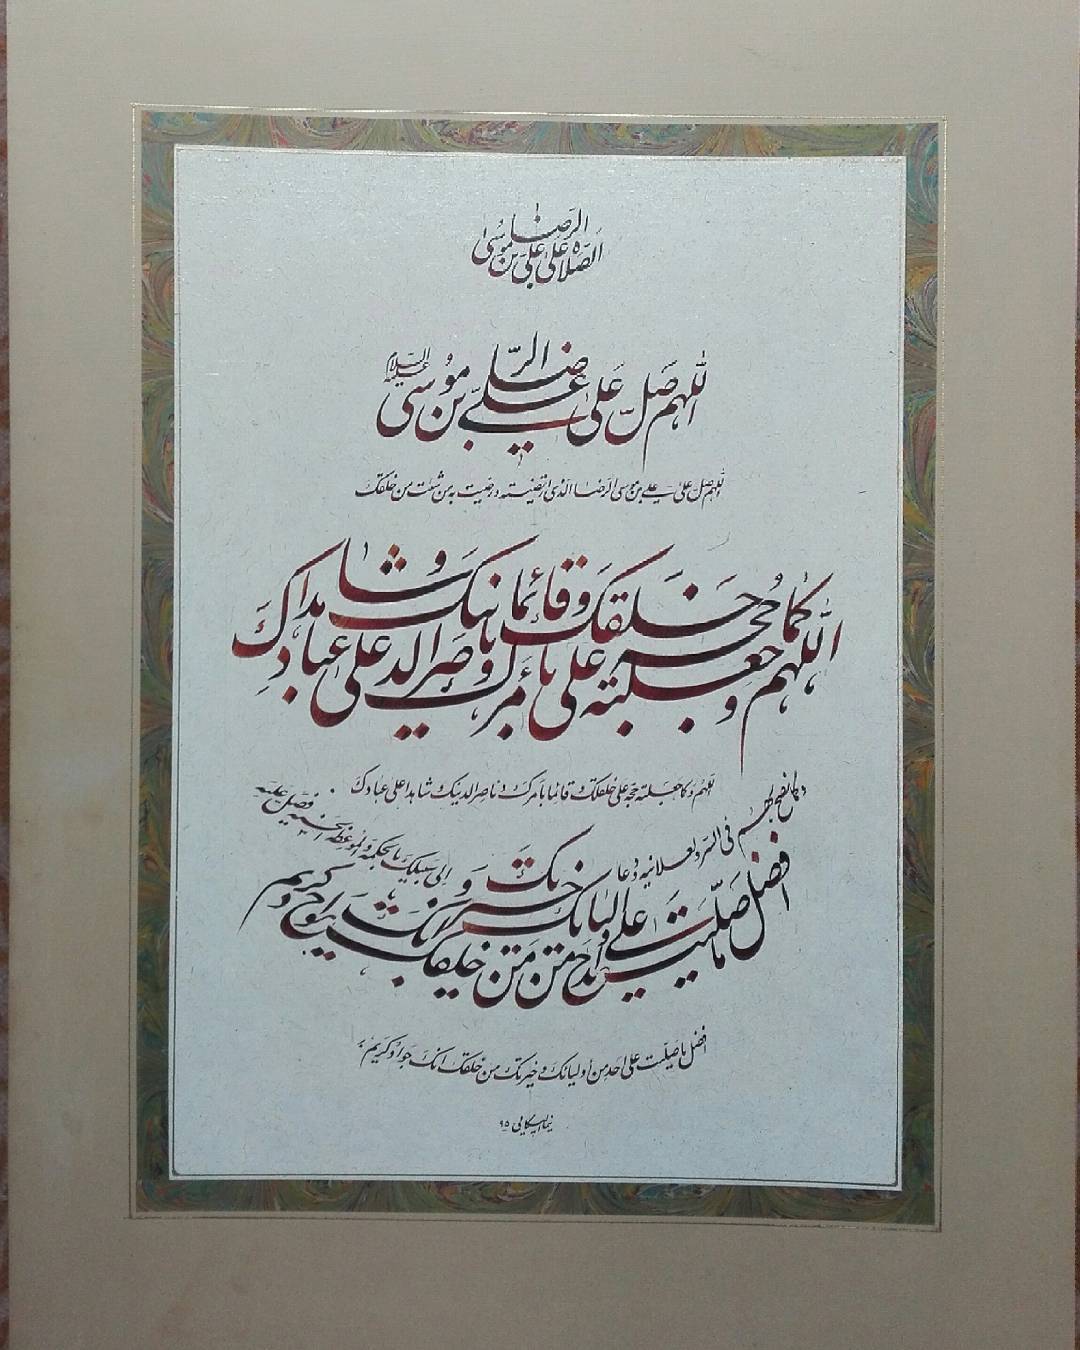 الصلاة علی علی بن موسی الرضا
اللهم صل علی علی بن موسی الرضا علیه السلام
اللهم صل علی علی بن موسی الرضا الذی ارتضیته و رضیت به من شئت من خلقک
اللهم و کما جعلته حجة علی خلقک و قائما بأمرک و ناصرا لدینک و شاهدا علی عبادک
اللهم و کما جعلته حجة علی خلقک و قائما بأمرک و ناصرا لدینک و شاهدا علی عبادک
و کما نصح لهم فی السر و العلانیه و دعا الی سبیلک بالحکمة و الموعظة الحسنة فصل علیه
افضل ما صلیت علی احد من اولیائک و خیرتک من خلقک انک جواد کریم
افضل ما صلیت علی احد من أولیائک و خیرتک من خلقک انک جواد کریم
۹۵